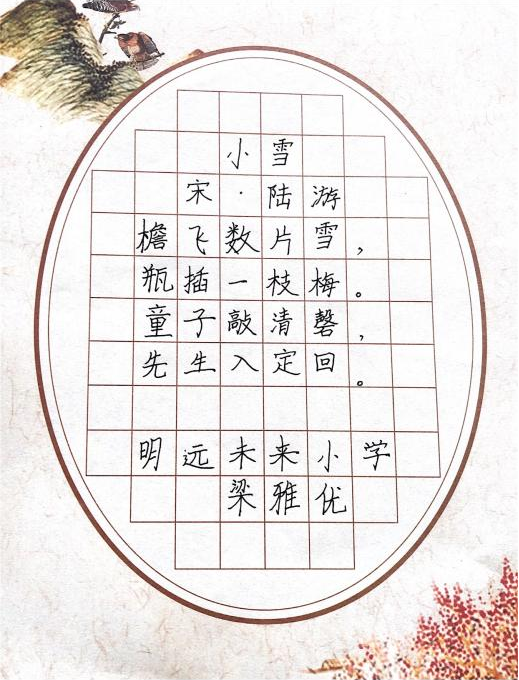 小雪
宋·陆游
檐飞数片雪，
瓶插一枝梅。
童子敲清磬，
先生入定回。
明远未来小学
梁雅优